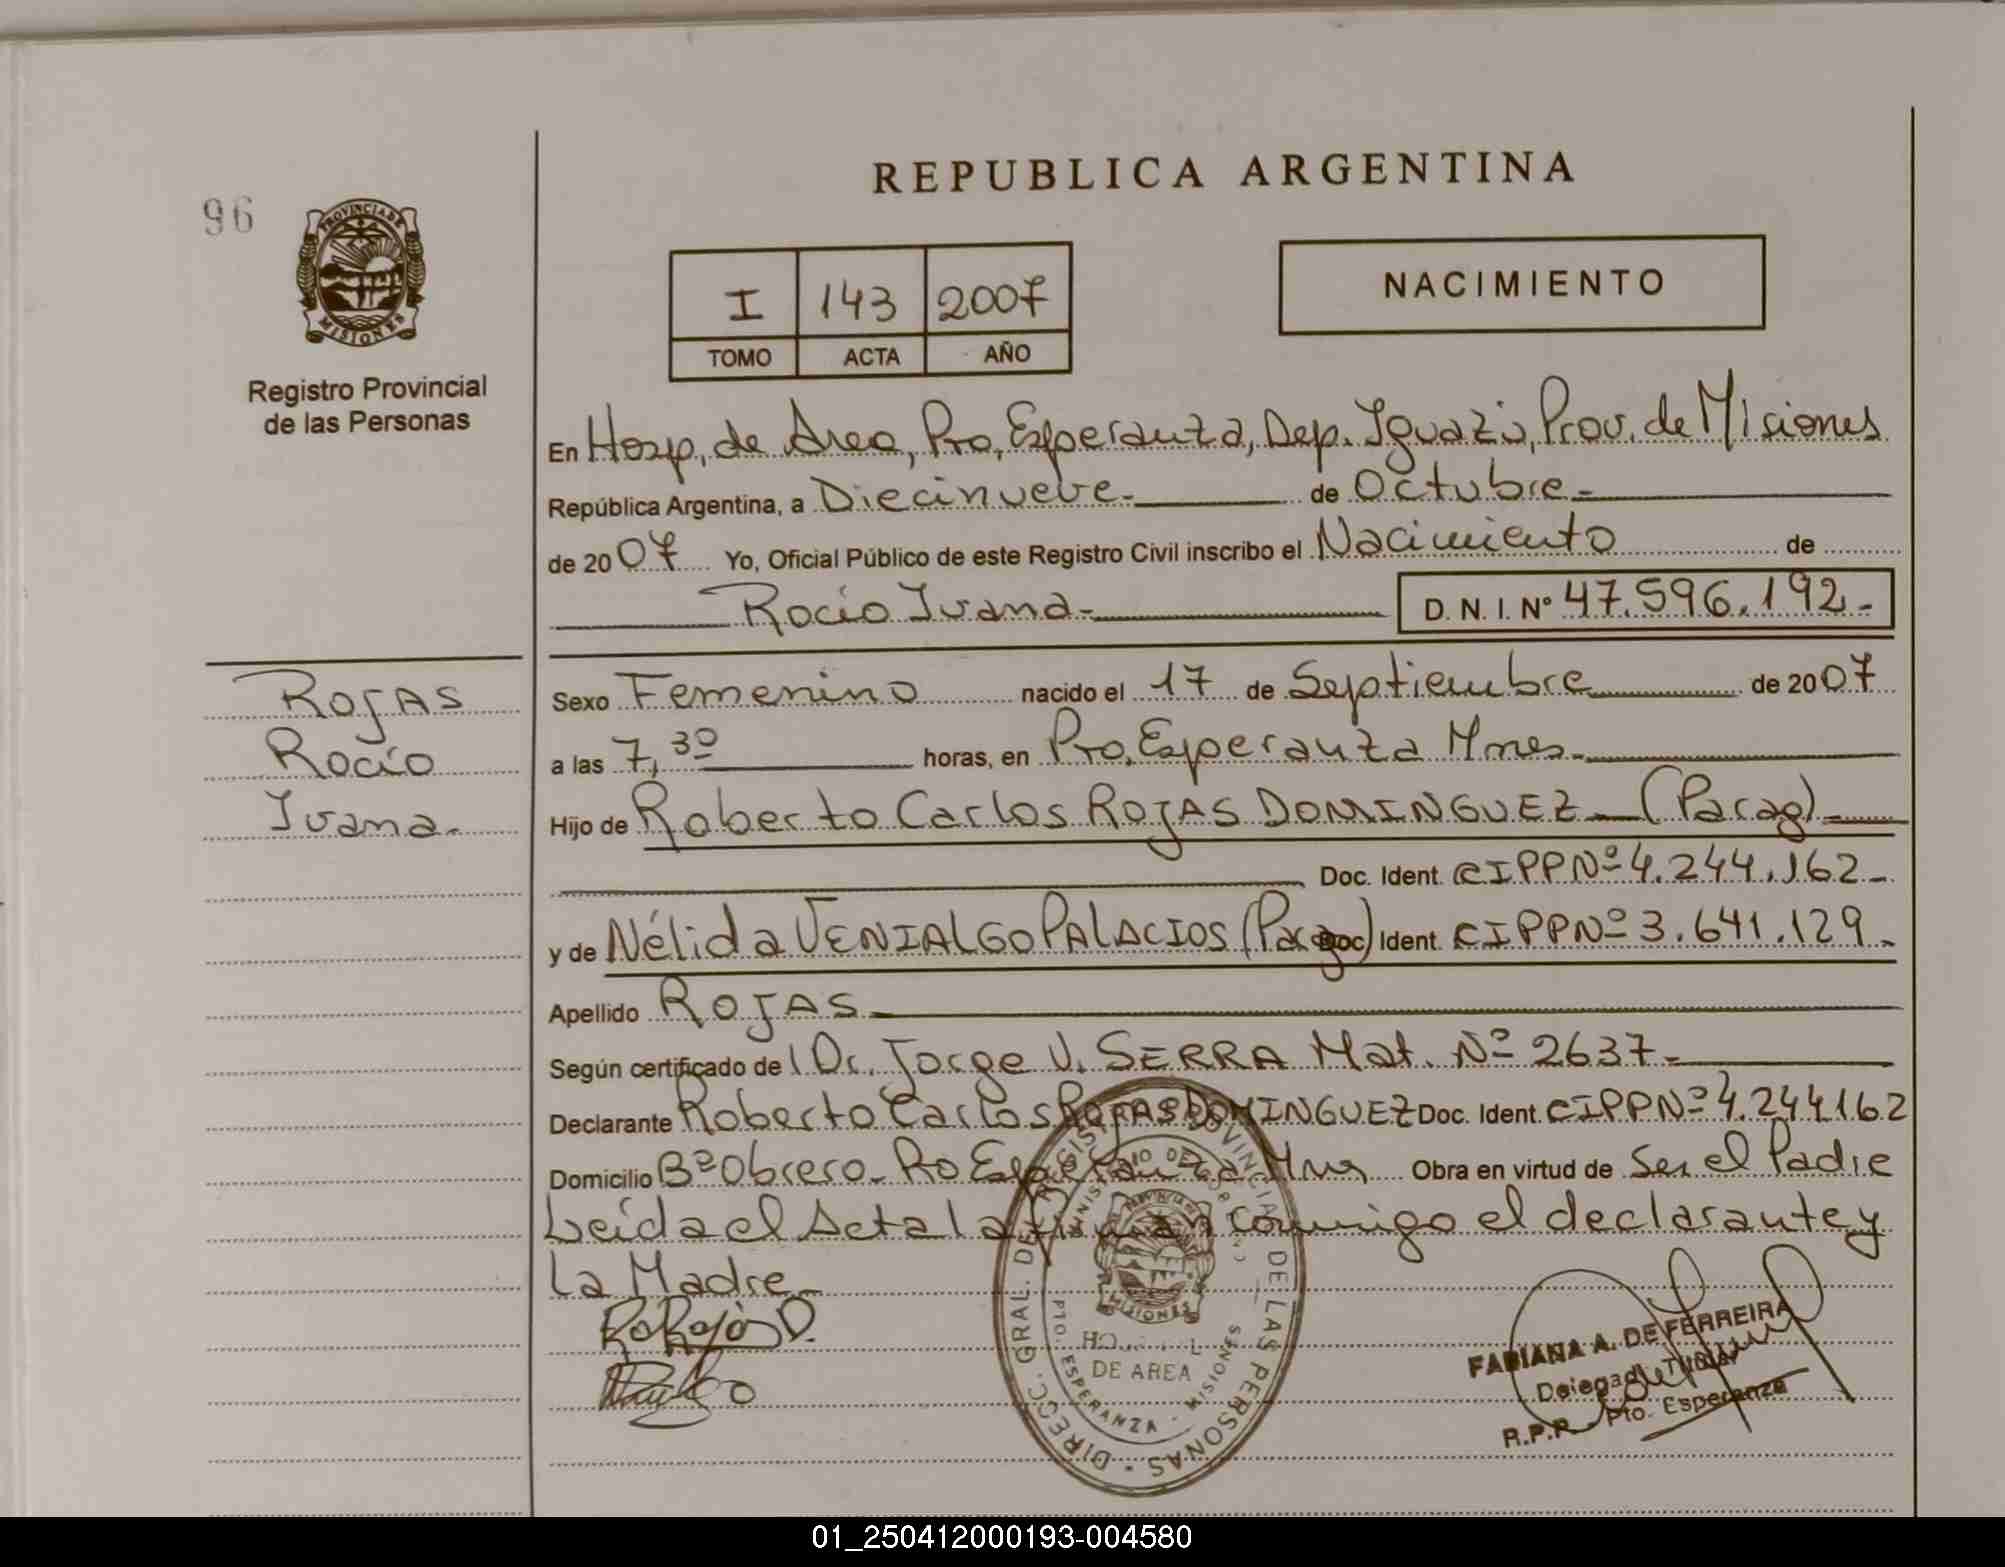 REPUBLICA ARGENTINA
96
PROVINCIA DE MISIONES
Registro Provincial
de las Personas
I 143 2007
TOMO ACTA AÑO
NACIMIENTO
En Hosp, de Area, Pto, Esperanza, Dep. Iguazú, Prov. de Misiones
República Argentina, a Diecinueve.- de Octubre.-
de 2007 Yo, Oficial Público de este Registro Civil inscribo el Nacimiento de
Rocío Ivana.- D. N. I. Nº 47.596.192.-
ROJAS
Rocío
Ivana.-
Sexo Femenino nacido el 17 de Septiembre de 2007
a las 7,30 horas, en Pto, Esperanza Mnes.-
Hijo de Roberto Carlos ROJAS DOMINGUEZ (Parag).-
Doc. Ident. CIPPNº 4.244.162.-
y de Nélida VENIALGO PALACIOS (Parag) Doc. Ident. CIPPNº 3.641.129.-
Apellido ROJAS.-
Según certificado de Dr. Jorge V. SERRA Mat. Nº 2637.-
Declarante Roberto Carlos ROJAS DOMINGUEZ Doc. Ident. CIPPNº 4.244.162
Domicilio Bº Obrero.- Pto Esperanza Mns Obra en virtud de Ser el Padre
Leída el Acta la firman conmigo el declarante y
La Madre.-
DIRECC. GRAL. DEL REGISTRO PROVINCIAL DE LAS PERSONAS
MINISTERIO DE GOBIERNO
MISIONES
DE AREA
PTO. ESPERANZA - MISIONES
FABIANA A. DE FERREIRA
Delegada Titular
R.P.P. - Pto. Esperanza
01_250412000193-004580